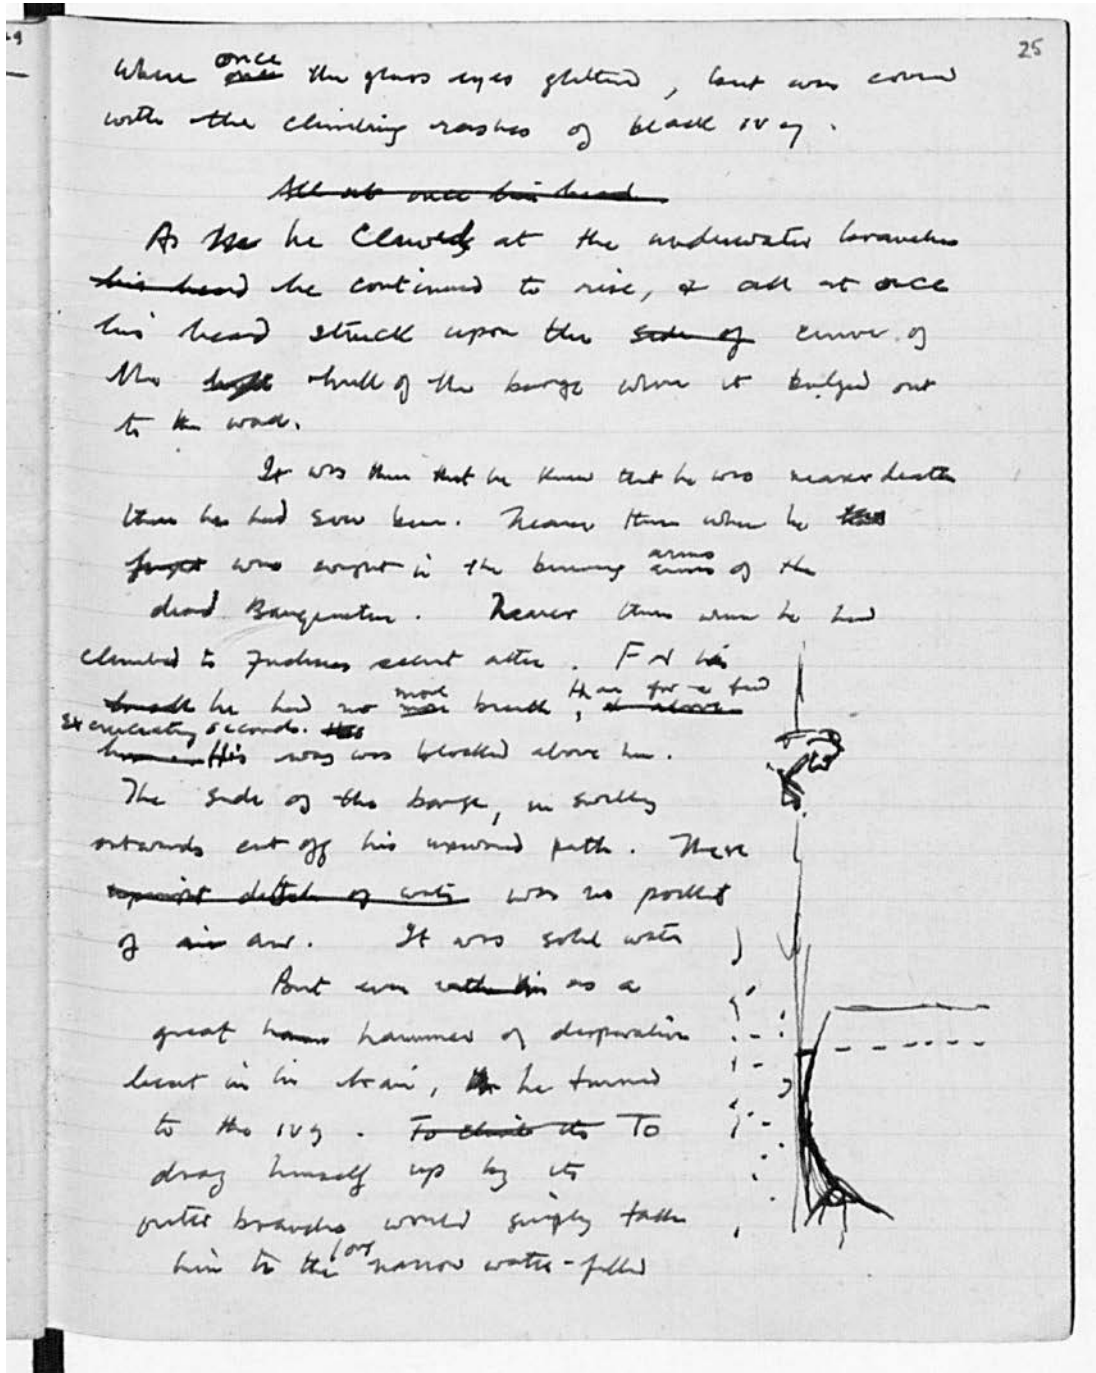 25
where once once the glass eyes glittered, but was covered
with the climbing rashes of black ivy.
All at once his head
As he clawed at the underwater branches
his head he continued to rise, & all at once
his head struck upon the side of curve of
the hull of the barge where it bulged out
to the wall.
It was then that he knew that he was nearer death
than he had ever been. Nearer than when he
was caught in the burning arms arms of the
dead Barquentine. Nearer than when he had
climbed to Fuchsia's secret attic. For his
breath he had no more more breath, than for a few
excruciating seconds.
His way was blocked above him.
The side of the barge, in swelling
outwards cut off his upward path. There
of water was no pocket
of air air. It was solid water
But even with his as a
great hammer of desperation
beat in his brain, he turned
to the ivy. To climb its To
drag himself up by its
outer branches would simply take
him to the long narrow water-filled